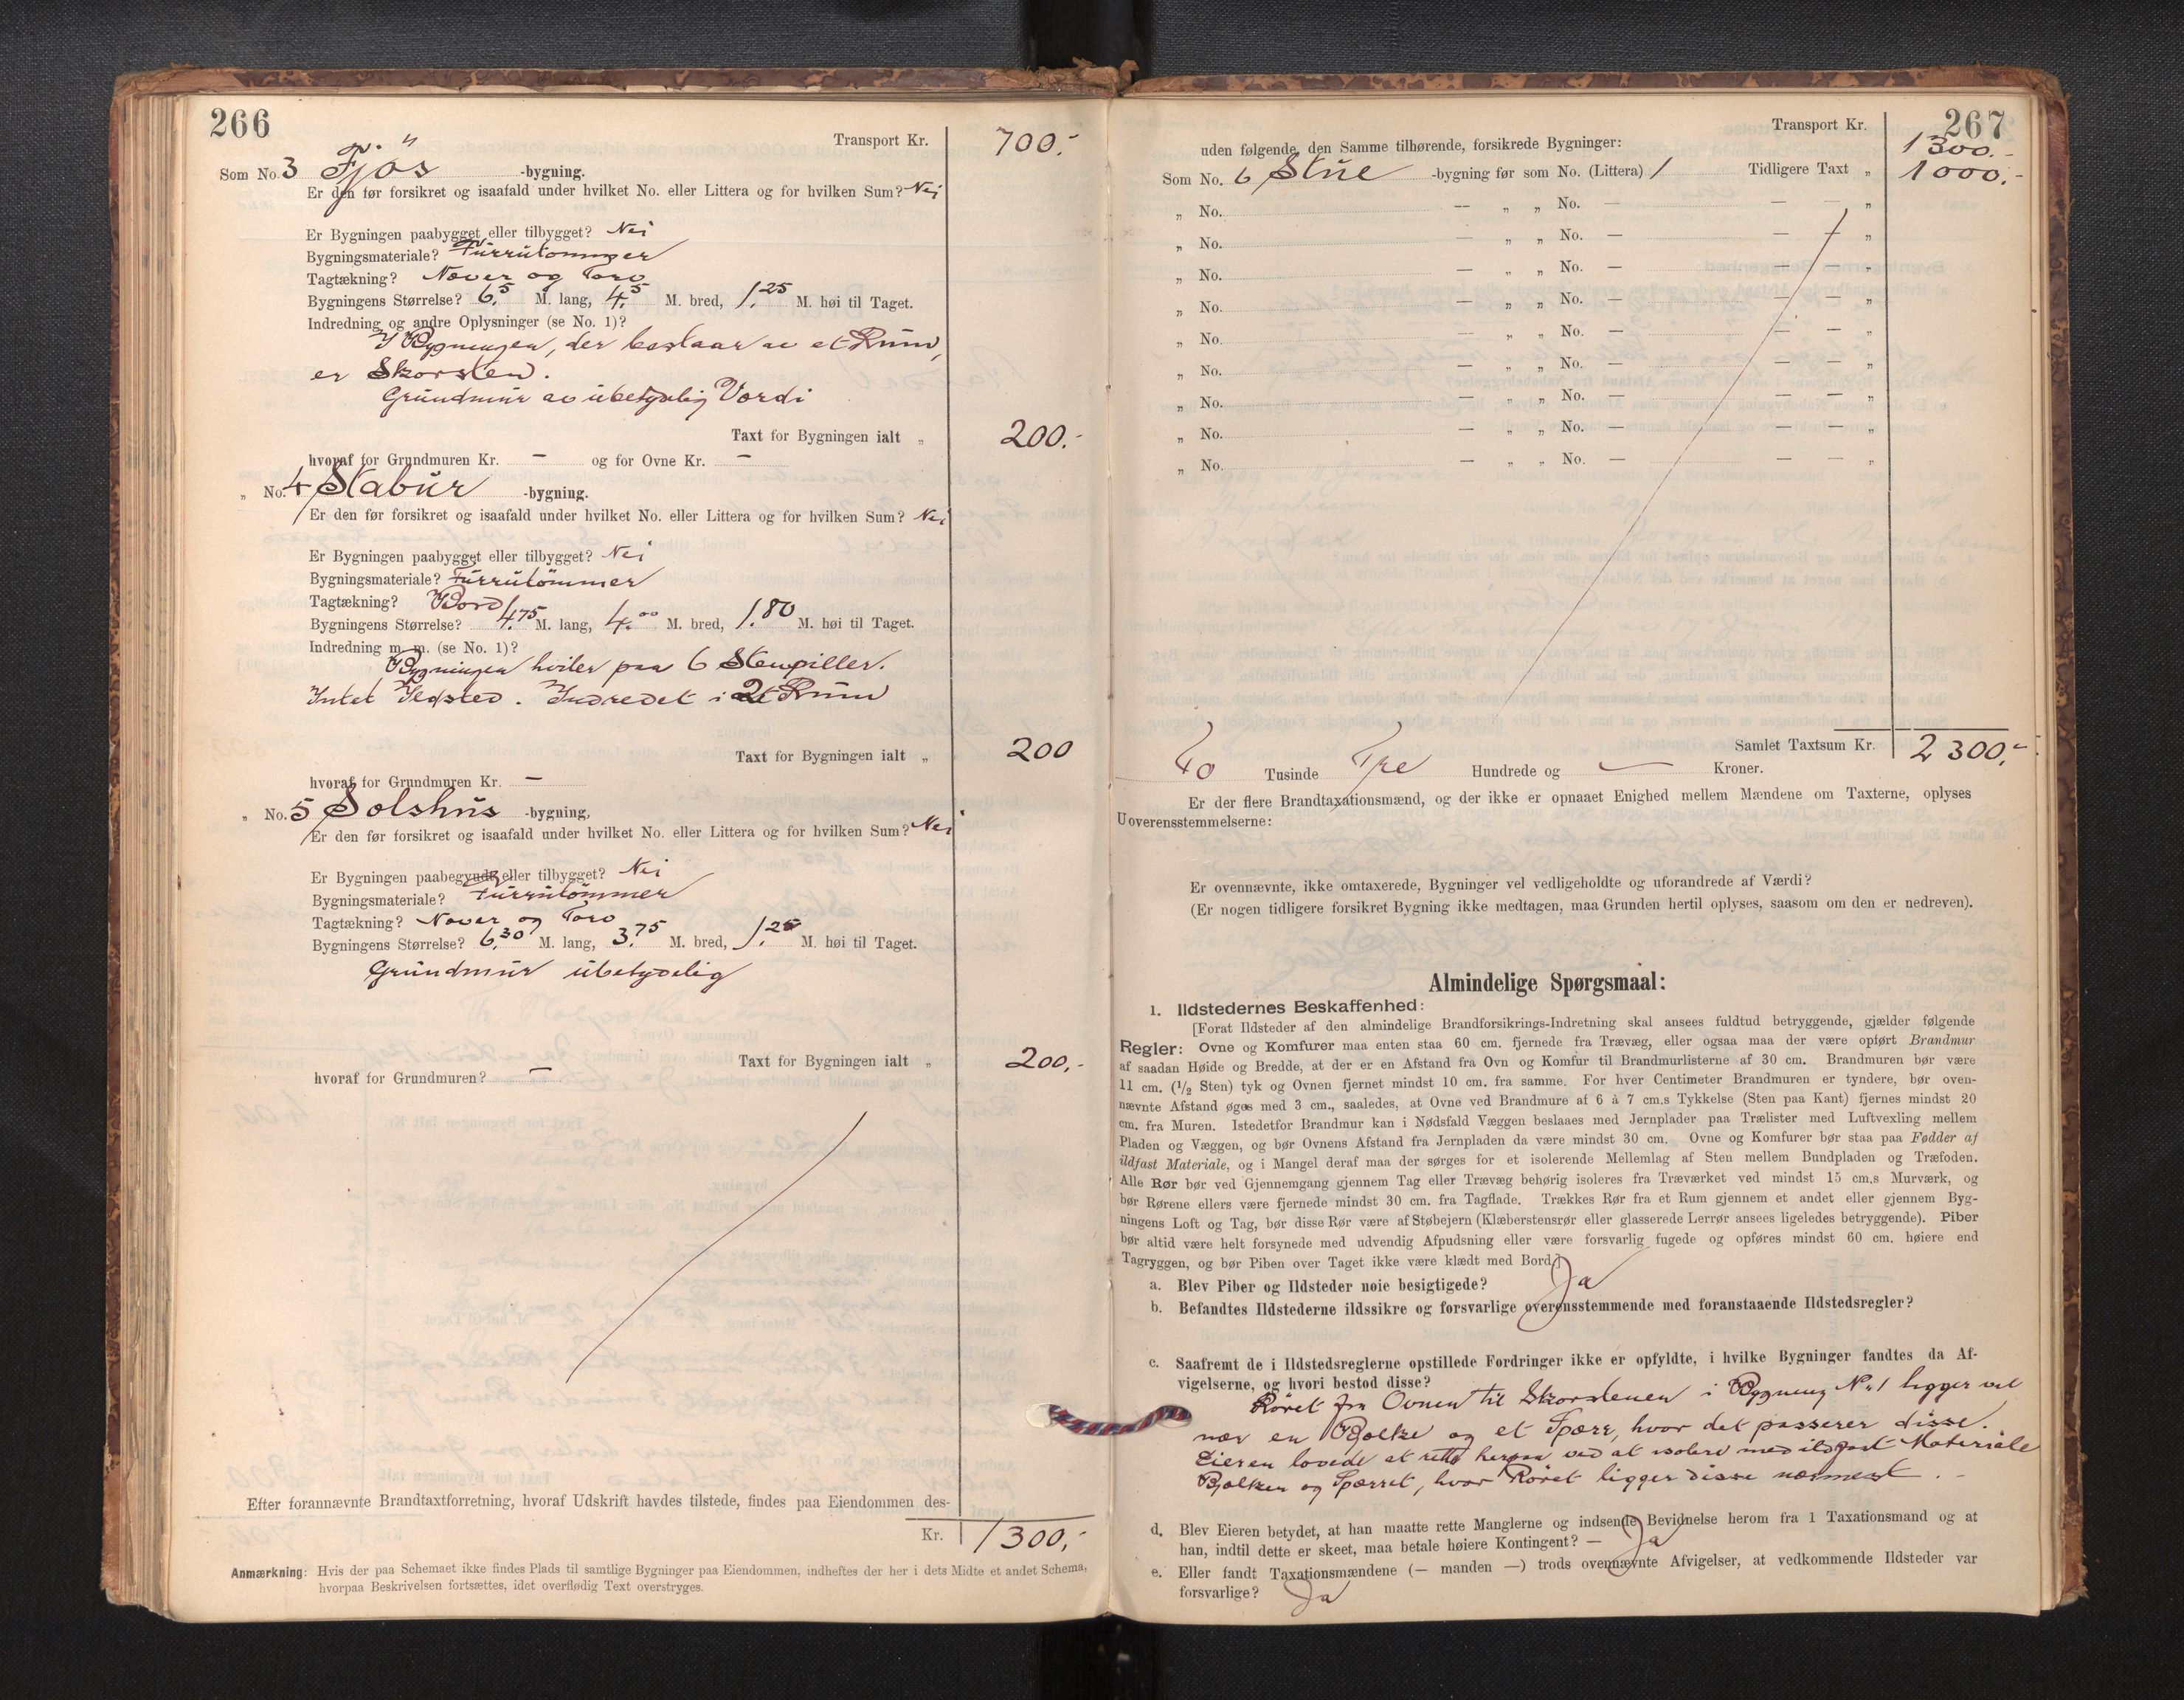 266
Transport Kr. 700.-
Som No. 3 Fjös -bygning.
Er den før forsikret og isaafald under hvilket No. eller Littera og for hvilken Sum? Nei
Er Bygningen paabygget eller tilbygget? Nei
Bygningsmateriale? Furrutømmer
Tagtækning? Næver og Torv
Bygningens Størrelse? 6,5 M. lang, 4,5 M. bred, 1,25 M. høi til Taget.
Indredning og andre Oplysninger (se No. 1)?
I Bygningen, der bestaar av et Rum,
er Skorsten.
Grundmur av ubetydelig Værdi
Taxt for Bygningen ialt „ 200.-
hvoraf for Grundmuren Kr. — og for Ovne Kr. —
„ No. 4 Stabur -bygning.
Er den før forsikret og isaafald under hvilket No. eller Littera og for hvilken Sum? Nei
Er Bygningen paabygget eller tilbygget? Nei
Bygningsmateriale? Furrutömmer
Tagtækning? Bord
Bygningens Størrelse? 4,75 M. lang, 4,00 M. bred, 1,80 M. høi til Taget.
Indredning m. m. (se No. 1)?
Bygningen hviler paa 6 Stenpiller.
Intet Ildsted. Indredet i 2 Rum
Taxt for Bygningen ialt „ 200
hvoraf for Grundmuren Kr. —
„ No. 5 Solshus -bygning,
Er den før forsikret og isaafald under hvilket No. eller Littera og for hvilken Sum? Nei
Er Bygningen paabegyndt eller tilbygget? Nei
Bygningsmateriale? Furrutömmer
Tagtækning? Næver og Torv
Bygningens Størrelse? 6,30 M. lang, 3,75 M. bred, 1,25 M. høi til Taget.
Grundmur ubetydelig
Taxt for Bygningen ialt „ 200,-
hvoraf for Grundmuren? —
Efter forannævnte Brandtaxtforretning, hvoraf Udskrift havdes tilstede, findes paa Eiendommen des-
Kr. 1300,-
Anmærkning: Hvis der paa Schemaet ikke findes Plads til samtlige Bygninger paa Eiendommen, indheftes der her i dets Midte et andet Schema,
hvorpaa Beskrivelsen fortsættes, idet overflødig Text overstryges.
267
Transport Kr. 1300.-
uden følgende, den Samme tilhørende, forsikrede Bygninger:
Som No. 6 Stue -bygning før som No. (Littera) 1 Tidligere Taxt „ 1000.-
„ No. — „ „ No. — — — „
„ No. — „ „ No. — — — „
„ No. — „ „ No. — — — „
„ No. — „ „ No. — — — „
„ No. — „ „ No. — — — „
„ No. — „ „ No. — — — „
„ No. — „ „ No. — — — „
„ No. — „ „ No. — — — „
„ No. — „ „ No. — — — „
Samlet Taxtsum Kr. 2300,-
To Tusinde Tre Hundrede og — Kroner.
Er der flere Brandtaxationsmænd, og der ikke er opnaaet Enighed mellem Mændene om Taxterne, oplyses
Uoverensstemmelserne:
Er ovennævnte, ikke omtaxerede, Bygninger vel vedligeholdte og uforandrede af Værdi?
(Er nogen tidligere forsikret Bygning ikke medtagen, maa Grunden hertil oplyses, saasom om den er nedreven).
Almindelige Spørgsmaal:
1. Ildstedernes Beskaffenhed:
[Forat Ildsteder af den almindelige Brandforsikrings-Indretning skal ansees fuldtud betryggende, gjælder følgende
Regler: Ovne og Komfurer maa enten staa 60 cm. fjernede fra Trævæg, eller ogsaa maa der være opført Brandmur
af saadan Høide og Bredde, at der er en Afstand fra Ovn og Komfur til Brandmurlisterne af 30 cm. Brandmuren bør være
11 cm. (½ Sten) tyk og Ovnen fjernet mindst 10 cm. fra samme. For hver Centimeter Brandmuren er tyndere, bør oven-
nævnte Afstand øges med 3 cm., saaledes, at Ovne ved Brandmure af 6 à 7 cm.s Tykkelse (Sten paa Kant) fjernes mindst 20
cm. fra Muren. Istedetfor Brandmur kan i Nødsfald Væggen beslaaes med Jernplader paa Trælister med Luftvexling mellem
Pladen og Væggen, og bør Ovnens Afstand fra Jernpladen da være mindst 30 cm. Ovne og Komfurer bør staa paa Fødder af
ildfast Materiale, og i Mangel deraf maa der sørges for et isolerende Mellemlag af Sten mellem Bundpladen og Træfoden.
Alle Rør bør ved Gjennemgang gjennem Tag eller Trævæg behørig isoleres fra Træverket ved mindst 15 cm.s Murværk, og
bør Rørene ellers være fjernede mindst 30 cm. fra Tagflade. Trækkes Rør fra et Rum gjennem et andet eller gjennem Byg-
ningens Loft og Tag, bør disse Rør være af Støbejern (Klæberstensrør eller glasserede Lerrør ansees ligeledes betryggende). Piber
bør altid være helt forsynede med udvendig Afpudsning eller være forsvarlig fugede og opføres mindst 60 cm. høiere end
Tagryggen, og bør Piben over Taget ikke være klædt med Bord.]
a. Blev Piber og Ildsteder nøie besigtigede? Ja
b. Befandtes Ildstederne ildssikre og forsvarlige overensstemmende med foranstaaende Ildstedsregler?
c. Saafremt de i Ildstedsreglerne opstillede Fordringer ikke er opfyldte, i hvilke Bygninger fandtes da Af-
vigelserne, og hvori bestod disse?
Røret fra Ovnen til Skorstenen i Bygning No 1 ligger vel
nær en Bjælke og et Spærr, hvor det passerer disse.
Eieren lovede at rette herpaa ved at isolere med ildfast Materiale
Bjælken og Spærret, hvor Røret ligger disse nærmest. -
d. Blev Eieren betydet, at han maatte rette Manglerne og indsende Bevidnelse herom fra 1 Taxationsmand og at
han, indtil dette er skeet, maa betale høiere Kontingent? — Ja
e. Eller fandt Taxationsmændene (— manden —) trods ovennævnte Afvigelser, at vedkommende Ildsteder var
forsvarlige? Ja